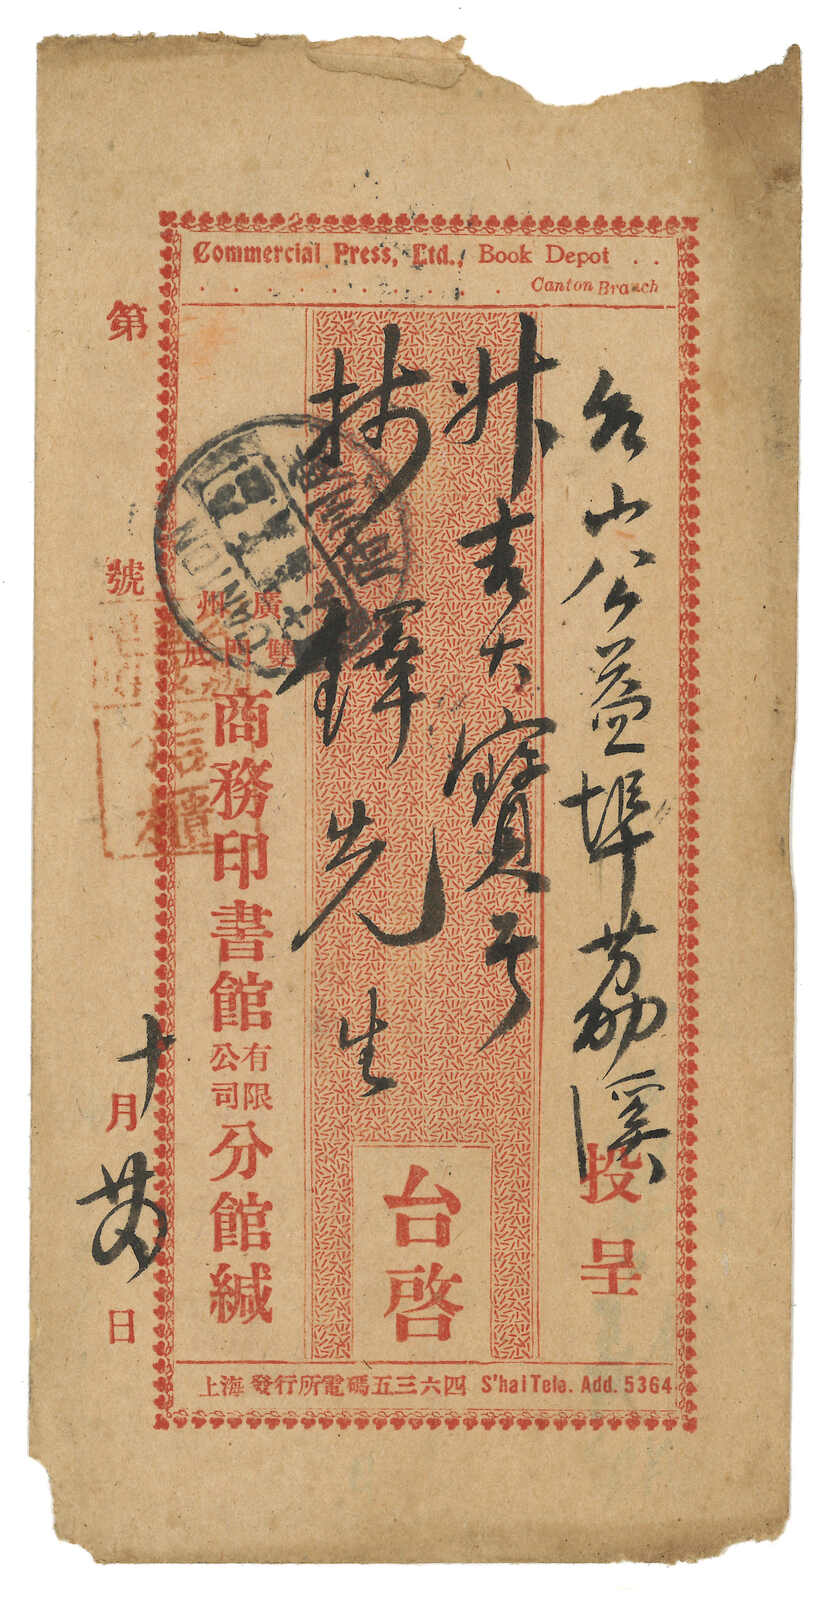 Commercial Press, Ltd., Book Depot . .
Canton Branch
台山公益埠荔溪
投呈
昇吉大寶号
鐸先生
台啓
廣州
雙門底
商務印書館有限公司分館緘
第 號
十月廿四日
信櫃
上海發行所電碼五三六四 S'hai Tele. Add. 5364